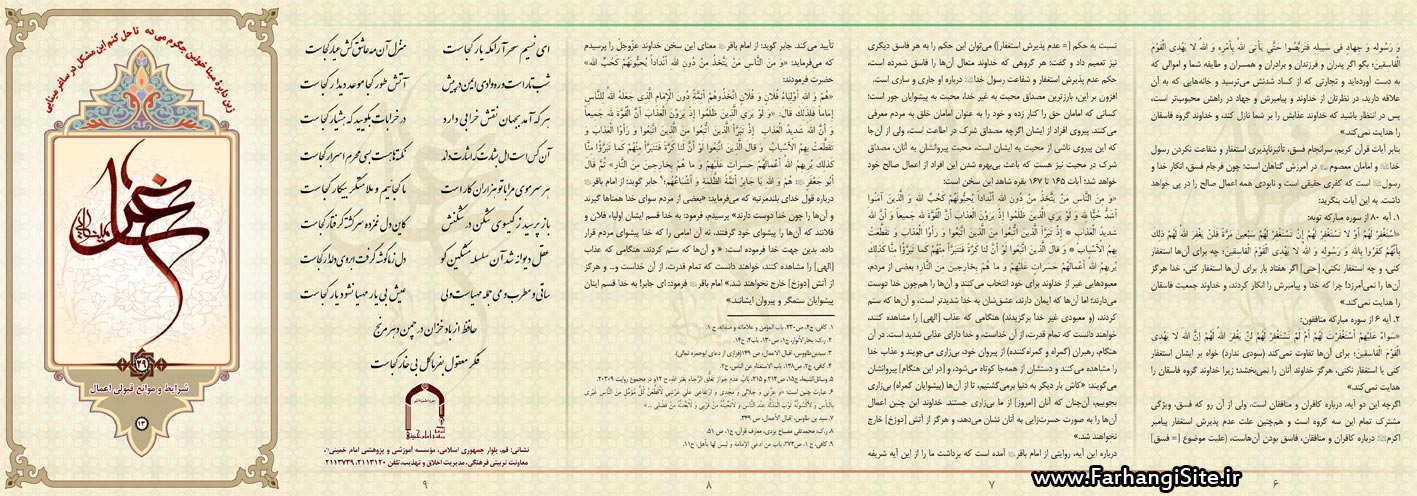 وَ رَسُولِهِ وَ جِهادٍ فی سَبیلِهِ فَتَرَبَّصُوا حَتَّی یَأْتِیَ اللهُ بِأَمْرِهِ وَ اللهُ لا یَهْدِی الْقَوْمَ
الْفاسِقینَ؛ بگو اگر پدران و فرزندان و برادران و همسران و طایفه شما و اموالی که
به دست آورده‌اید و تجارتی که از کساد شدنش می‌ترسید و خانه‌هایی که به آن
علاقه دارید، در نظرتان از خداوند و پیامبرش و جهاد در راهش محبوب‌تر است،
پس در انتظار باشید که خداوند عذابش را بر شما نازل کند، و خداوند گروه فاسقان
را هدایت نمی‌کند»
بنابر آیات قرآن کریم، سرانجام فسق، تأثیرناپذیری استغفار و شفاعت نکردن رسول
خدا و امامان معصوم در آمرزش گناهان است؛ چون فرجام فسق، انکار خدا و
رسول است که کفری حقیقی است و نابودی همه اعمال صالح را در پی خواهد
داشت. به این آیات بنگرید:
۱. آیه ۸۰ از سوره مبارکه توبه:
«اسْتَغْفِرْ لَهُمْ أَوْ لا تَسْتَغْفِرْ لَهُمْ إِنْ تَسْتَغْفِرْ لَهُمْ سَبْعینَ مَرَّةً فَلَنْ یَغْفِرَ اللهُ لَهُمْ ذلِكَ
بِأَنَّهُمْ كَفَرُوا بِاللهِ وَ رَسُولِهِ وَ اللهُ لا یَهْدِی الْقَوْمَ الْفاسِقینَ؛ چه برای آن‌ها استغفار
کنی، و چه استغفار نکنی، [حتی] اگر هفتاد بار برای آن‌ها استغفار کنی، خدا هرگز
آن‌ها را نمی‌آمرزد! چرا که خدا و پیامبرش را انکار کردند؛ و خداوند جمعیت فاسقان
را هدایت نمی‌کند»
۲. آیه ۶ از سوره مبارکه منافقون:
«سَواءٌ عَلَیْهِمْ أَسْتَغْفَرْتَ لَهُمْ أَمْ لَمْ تَسْتَغْفِرْ لَهُمْ لَنْ یَغْفِرَ اللهُ لَهُمْ إِنَّ اللهَ لا یَهْدِی
الْقَوْمَ الْفاسِقینَ؛ برای آن‌ها تفاوت نمی‌کند (سودی ندارد) خواه بر ایشان استغفار
کنی یا استغفار نکنی، هرگز خداوند آنان را نمی‌بخشد؛ زیرا خداوند گروه فاسقان را
هدایت نمی‌کند»
اگرچه این دو آیه، درباره کافران و منافقان است، ولی از آن رو که فسق، ویژگی
مشترک تمام این سه گروه است و هم‌چنین علت عدم پذیرش استغفار پیامبر
اکرم درباره کافران و منافقان، فاسق بودن آن‌هاست، (علیت موضوع [= فسق]
۶
نسبت به حکم [= عدم پذیرش استغفار]) می‌توان این حکم را به هر فاسق دیگری
نیز تعمیم داد و گفت: هر گروهی که خداوند متعال آن‌ها را فاسق شمرده است،
حکم عدم پذیرش استغفار و شفاعت رسول خدا درباره او جاری و ساری است.
افزون بر این، بارزترین مصداق محبت به غیر خدا، محبت به پیشوایان جور است؛
کسانی که امامان حق را کنار زده و خود را به عنوان امامان خلق به مردم معرفی
می‌کنند. پیروی افراد از ایشان اگرچه مصداق شرک در اطاعت است، ولی از آن‌جا
که این پیروی ناشی از محبت به ایشان است، محبت پیروانشان به آنان، مصداق
شرک در محبت نیز هست که باعث بی‌بهره شدن این افراد از اعمال صالح خود
خواهد شد؛ آیات ۱۶۵ تا ۱۶۷ بقره شاهد این سخن است:
«وَ مِنَ النَّاسِ مَنْ یَتَّخِذُ مِنْ دُونِ اللهِ أَنْداداً یُحِبُّونَهُمْ كَحُبِّ اللهِ وَ الَّذینَ آمَنُوا
أَشَدُّ حُبًّا لِلَّهِ وَ لَوْ یَرَی الَّذینَ ظَلَمُوا إِذْ یَرَوْنَ الْعَذابَ أَنَّ الْقُوَّةَ لِلَّهِ جَمیعاً وَ أَنَّ اللهَ
شَدیدُ الْعَذابِ * إِذْ تَبَرَّأَ الَّذینَ اتُّبِعُوا مِنَ الَّذینَ اتَّبَعُوا وَ رَأَوُا الْعَذابَ وَ تَقَطَّعَتْ
بِهِمُ الْأَسْبابُ * وَ قالَ الَّذینَ اتَّبَعُوا لَوْ أَنَّ لَنا كَرَّةً فَنَتَبَرَّأَ مِنْهُمْ كَما تَبَرَّؤُا مِنَّا كَذلِكَ
یُریهِمُ اللهُ أَعْمالَهُمْ حَسَراتٍ عَلَیْهِمْ وَ ما هُمْ بِخارِجینَ مِنَ النَّارِ؛ بعضی از مردم،
معبودهایی غیر از خداوند برای خود انتخاب می‌کنند و آن‌ها را هم‌چون خدا دوست
می‌دارند؛ اما آن‌ها که ایمان دارند، عشق‌شان به خدا شدیدتر است، و آن‌ها که ستم
کردند، (و معبودی غیر خدا برگزیدند) هنگامی که عذاب [الهی] را مشاهده کنند،
خواهند دانست که تمام قدرت، از آن خداست، و خدا دارای عذابی شدید است. در آن
هنگام، رهبران (گمراه و گمراه‌کننده) از پیروان خود، بی‌زاری می‌جویند و عذاب خدا
را مشاهده می‌کنند و دستشان از همه‌جا کوتاه می‌شود، و [در این هنگام] پیروانشان
می‌گویند: «کاش بار دیگر به دنیا برمی‌گشتیم، تا از آن‌ها (پیشوایان گمراه) بی‌زاری
بجوییم، آن‌چنان که آنان [امروز] از ما بی‌زاری جستند. خداوند این چنین اعمال
آن‌ها را به صورت حسرت‌زایی به آنان نشان می‌دهد، و هرگز از آتش [دوزخ] خارج
نخواهند شد.»
درباره این آیه، روایتی از امام باقر آمده است که برداشت ما را از این آیه شریفه
۷
تأیید می‌کند. جابر گوید: از امام باقر معنای این سخن خداوند عزّوجلّ را پرسیدم
که می‌فرماید: «وَ مِنَ النَّاسِ مَنْ یَتَّخِذُ مِنْ دُونِ اللهِ أَنْداداً یُحِبُّونَهُمْ كَحُبِّ اللهِ»
حضرت فرمودند:
«هُمْ وَ اللهِ أَوْلِیَاءُ فُلَانٍ وَ فُلَانٍ اتَّخَذُوهُمْ أَئِمَّةً دُونَ الْإِمَامِ الَّذِی جَعَلَهُ اللهُ لِلنَّاسِ
إِمَاماً فَلِذَلِكَ قَالَ: «وَ لَوْ یَرَی الَّذینَ ظَلَمُوا إِذْ یَرَوْنَ الْعَذابَ أَنَّ الْقُوَّةَ لِلَّهِ جَمیعاً
وَ أَنَّ اللهَ شَدیدُ الْعَذابِ إِذْ تَبَرَّأَ الَّذینَ اتُّبِعُوا مِنَ الَّذینَ اتَّبَعُوا وَ رَأَوُا الْعَذابَ وَ
تَقَطَّعَتْ بِهِمُ الْأَسْبابُ وَ قالَ الَّذینَ اتَّبَعُوا لَوْ أَنَّ لَنا كَرَّةً فَنَتَبَرَّأَ مِنْهُمْ كَما تَبَرَّؤُا مِنَّا
كَذلِكَ یُریهِمُ اللهُ أَعْمالَهُمْ حَسَراتٍ عَلَیْهِمْ وَ ما هُمْ بِخارِجینَ مِنَ النَّارِ» ثُمَّ قَالَ
أَبُو جَعْفَرٍ: هُمْ وَ اللهِ یَا جَابِرُ أَئِمَّةُ الظَّلَمَةِ وَ أَشْیَاعُهُمْ؛ جابر گوید: از امام باقر
درباره قول خدای بلندمرتبه که می‌فرماید: «بعضی از مردم سوای خدا همتاها گیرند
و آن‌ها را چون خدا دوست دارند» پرسیدم، فرمود: به خدا قسم ایشان اولیاء فلان و
فلانند که آن‌ها را پیشوای خود گرفتند، نه آن امامی را که خدا پیشوای مردم قرار
داده. بدین جهت خدا فرموده است: « و آن‌ها که ستم کردند، هنگامی که عذاب
[الهی] را مشاهده کنند، خواهند دانست که تمام قدرت، از آن خداست و... و هرگز
از آتش [دوزخ] خارج نخواهند شد.» امام باقر فرمود: ای جابر! به خدا قسم اینان
پیشوایان ستمگر و پیروان ایشانند.»
۱. کافی، ج۲، ص۲۳۰، باب المؤمن و علاماته و صفاته، ح۱.
۲. ر.ک: بحارالأنوار، ج۱، ص۱۳۰، باب۴، ح۱۴.
۳. سیدبن طاووس، اقبال الاعمال، ص۱۴۹ (فرازی از دعای ابوحمزه ثمالی).
۴. کافی، ج۲، ص۱۳۸، باب الاستغناء عن الناس، ح۲.
۵. وسائل الشیعه، ج۱۵، ص۲۱۴ و ۲۱۵، باب
۷. سید بن طاووس، اقبال الأعمال، ص۳۴۹.
۸. ر.ک: محمدتقی مصباح یزدی، معارف قرآن، ج۱، ص۵۱.
۹. کافی، ج۱، ص۳۷۴، باب من ادعی الإمامه و لیس لها بأهل، ح۱۱.
۸
ای نسیم سحر آرامگه یار کجاست
منزل آن مه عاشق‌کش عیار کجاست
شب تار است و ره وادی ایمن در پیش
آتش طور کجا موعد دیدار کجاست
هر که آمد به جهان نقش خرابی دارد
در خرابات بگویید که هشیار کجاست
آن کس است اهل بشارت که اشارت داند
نکته‌ها هست بسی محرم اسرار کجاست
هر سر موی مرا با تو هزاران کار است
ما کجاییم و ملامتگر بیکار کجاست
باز پرسید ز گیسوی شکن در شکنش
کاین دل غمزده سرگشته گرفتار کجاست
عقل دیوانه شد آن سلسله مشکین کو
دل ز ما گوشه گرفت ابروی دلدار کجاست
ساقی و مطرب و می جمله مهیاست ولی
عیش بی یار مهیا نشود یار کجاست
حافظ از باد خزان در چمن دهر مرنج
فکر معقول بفرما گل بی خار کجاست
نشانی: قم، بلوار جمهوری اسلامی، مؤسسه آموزشی و پژوهشی امام خمینی
معاونت تربیتی فرهنگی، مدیریت اخلاق و تهذیب، تلفن ۲۱۱۳۱۲۰، ۲۱۱۳۷۳۹
۹
زین دایرهٔ مینا خونین جگرم می ده تا حل کنم این مشکل در ساغر مینایی
۳۹
شرایط و موانع قبولی اعمال
۱۳
www.FarhangiSite.ir